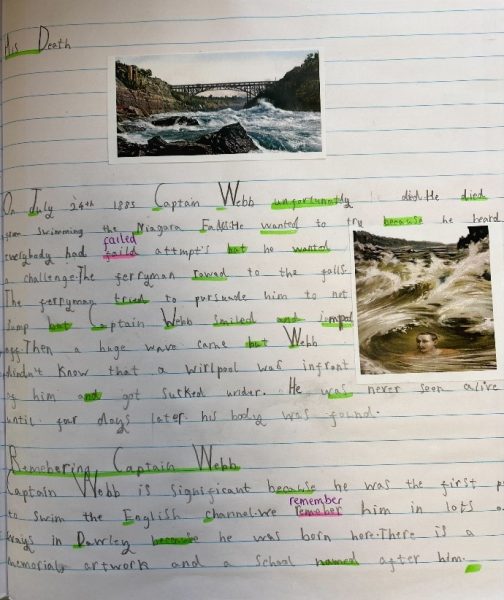 His Death
On July 24th 1883 Captain Webb unfortunatly died. He died
from swimming the Niagara Falls. He wanted to try because he heard
failed
everybody had faild attmpt's but he wanted
a challenge. The ferryman rowed to the falls.
The ferryman tried to pursuade him to not
Jump but Captain Webb smiled and jumped
off. Then a huge wave came but Webb
didn't know that a wirlpool was infront
of him and got sucked under. He was never seen alive
until four days later his body was found.
Remebering Captain Webb
Captain Webb is significant because he was the first
remember
to swim the English channel. We remeber him in lots
ways in Dawley because he was born here. There is a
memorial, artwork and a school named after him.